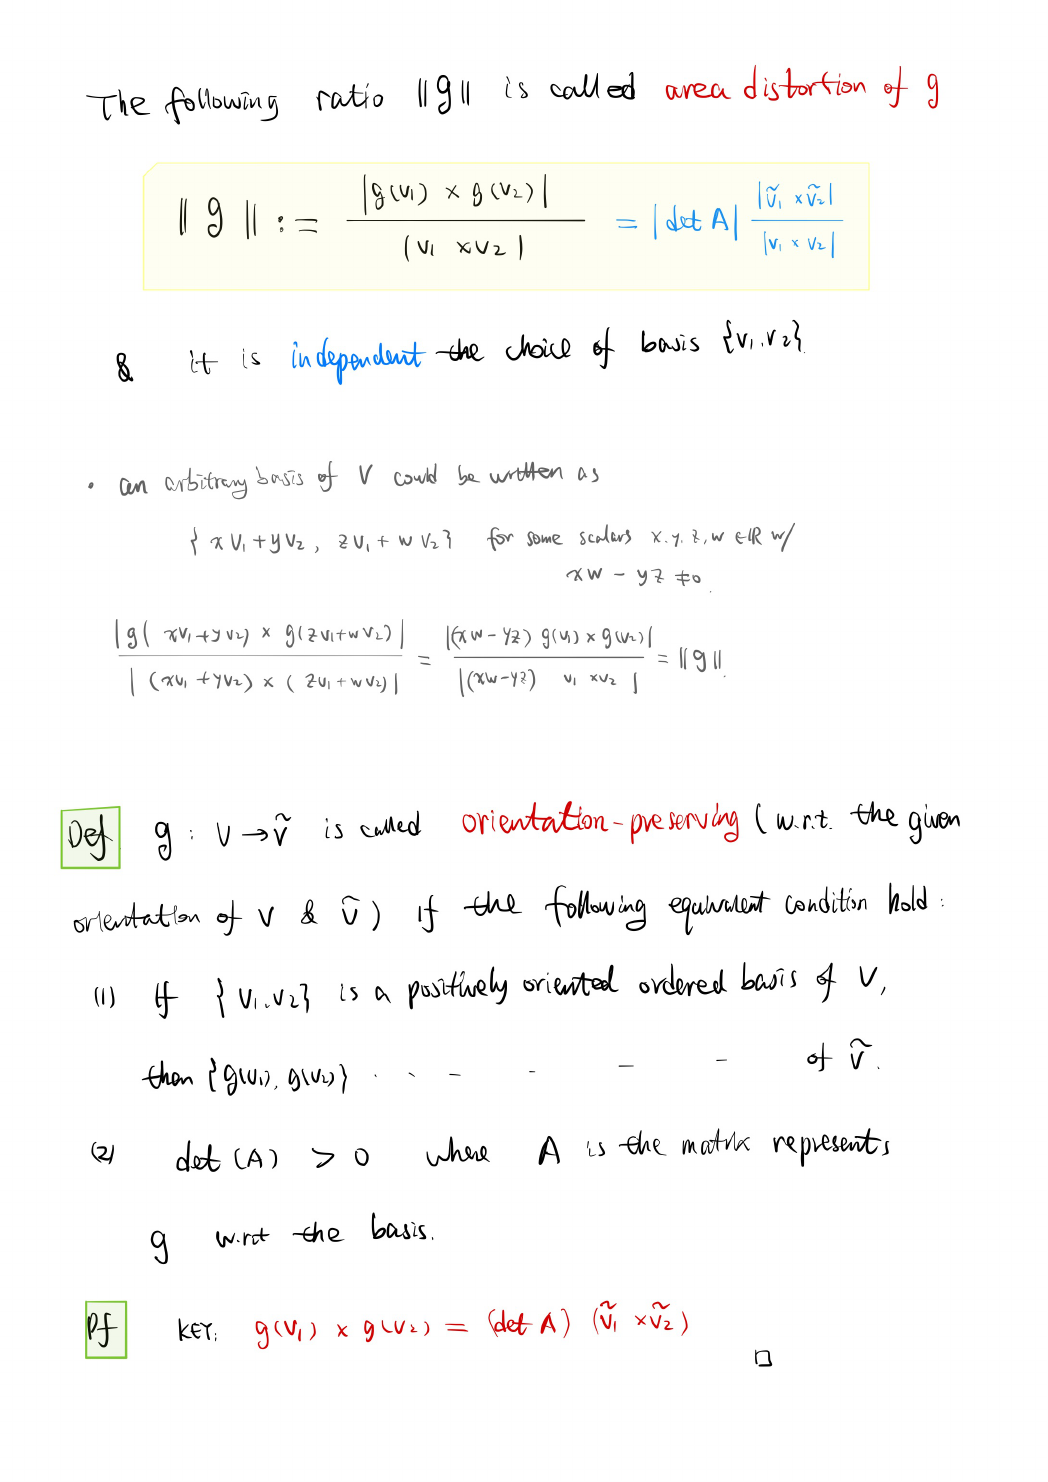 The following ratio ‖g‖ is called area distortion of g
‖ g ‖ := |g(v₁) × g(v₂)| / |v₁ × v₂| = |det A| |ṽ₁ × ṽ₂| / |v₁ × v₂|
& it is independent the choice of basis {v₁, v₂}.
• an arbitrary basis of V could be written as
{ xv₁ + yv₂ , zv₁ + wv₂ } for some scalars x, y, z, w ∈ ℝ w/
xw − yz ≠ 0.
|g( xv₁ + yv₂) × g(zv₁ + wv₂)| / | (xv₁ + yv₂) × ( zv₁ + wv₂)| = |(xw − yz) g(v₁) × g(v₂)| / |(xw − yz) v₁ × v₂ | = ‖g‖.
Def g : V → Ṽ is called orientation-preserving (w.r.t. the given
orientation of V & Ṽ) if the following equivalent condition hold :
(1) If {v₁, v₂} is a positively oriented ordered basis of V,
then {g(v₁), g(v₂)} . . . - - - - of Ṽ.
(2) det (A) > 0 where A is the matrix represents
g w.r.t the basis.
Pf KEY: g(v₁) × g(v₂) = (det A) (ṽ₁ × ṽ₂)
□